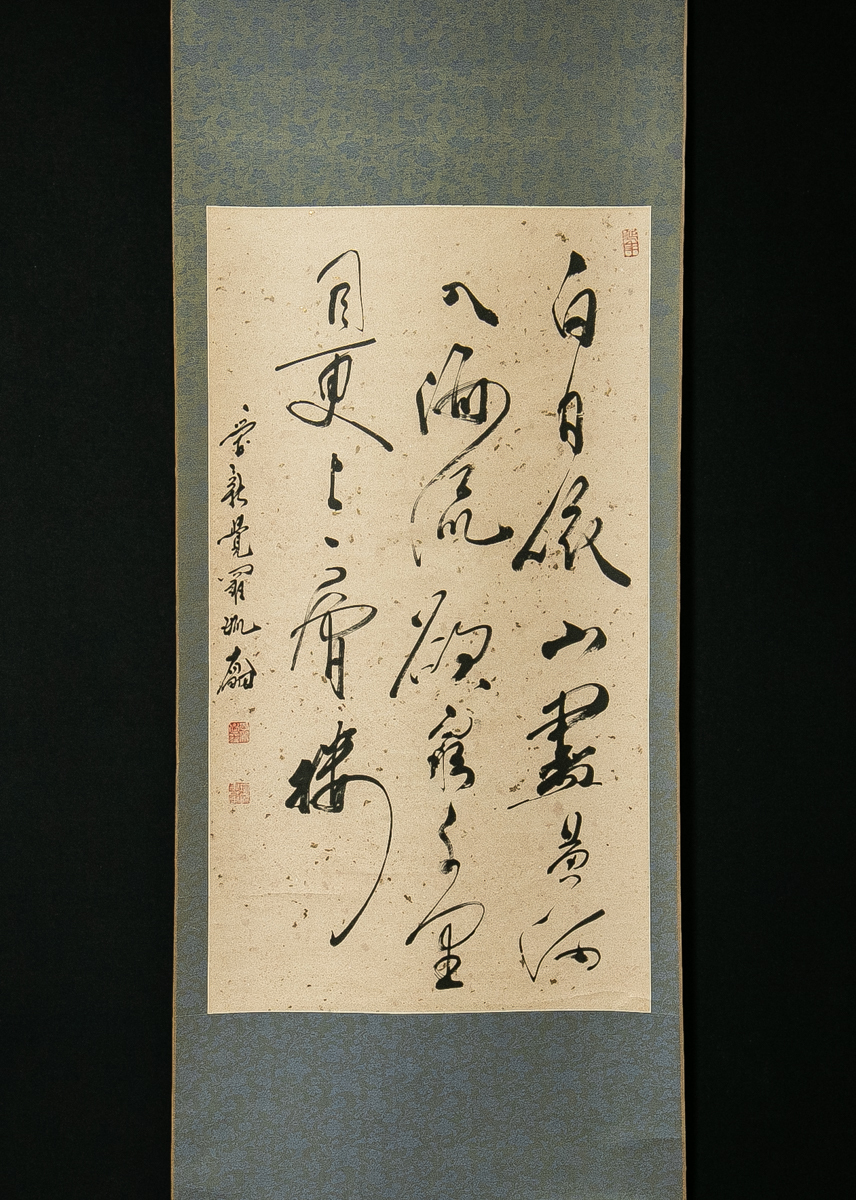 白日依山盡黄河
入海流欲窮千里
目更上一層樓
愛新覺羅